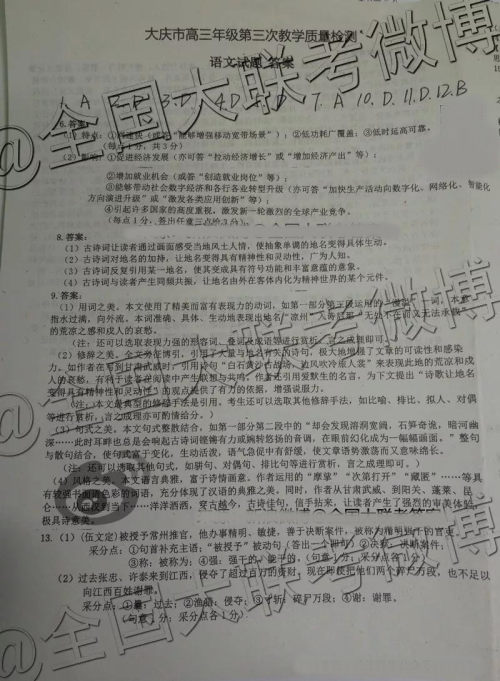 大庆市高三年级第三次教学质量检测
语文试题 答案
1. A 2. D 3. D 4. D 5. D 7. A 10. D. 11. D. 12. B
6.答案:
(每点1分,共3分)
(2)影响:①促进经济发展(亦可答“拉动经济增长”或“增加经济产出”等);
②增加就业机会(或答“创造就业岗位”等);
③能够带动社会数字经济和各行各业转型升级(亦可答“加快生产活动向数字化、网络化、智能化
方向演进升级”或“激发各类应用创新”等);
④引起许多国家的高度重视,激发新一轮激烈的全球产业竞争。
8.答案:
(1)古诗词让读者通过画面感受当地风土人情,使抽象单调的地名变得具体生动。
(2)古诗词对地名的加持,让地名变得具有精神性和灵动性,广为人知。
(3)古诗词反复引用某一地名,使其变成具有符号功能和丰富意蕴的意象。
(4)古诗词与读者产生同频共振,让地名由外在客体内化为精神世界的某个元件。
9.答案:
(1)用词之美。本文使用了精美而富有表现力的动词,如第一部分第三段运用的
指水过满,向外流。本词准确、具体、生动地表现出地名“凉州”
的荒凉之感和戍人的哀愁。
(注:还可以选取表现力强的形容词、叠词及成语等进行赏析,言之成理即可)
(2)修辞之美。全文旁征博引,引用了大量与地名有关的诗句,极大地增强了文章的可读性和感染
力。如作者在写到甘肃武威时,引用诗句“白石黄沙古战场,边风吹冷旅人裳”来表现此地的荒凉和戍
人的哀愁,有利于读者在阅读中产生联想与共鸣。作者还引用爱默生的名言,为下文提出“诗歌让地名
变得具有精神性和灵动性”的观点提供了有力的依据,增强说服力。
(注:本文最典型的修辞手法是引用。考生还可以选取其他修辞手法,如比喻、排比、拟人、对偶
等进行赏析,言之成理亦可酌情给分。)
(3)句式之美。本文句式整散结合,如第一部分第二段中的“却会发现溶洞宽阔,石笋奇诡,暗河幽
深……此时耳畔也总是会响起古诗词铿锵有力或婉转悠扬的音调,在眼前幻化成为一幅幅画面。”整句
与散句结合,使句式富于变化,生动活泼,语气急促中有舒缓,使文章语势激荡而又意味绵长。
(注:还可以选取其他句式,如骈句、对偶句、排比句等进行赏析,言之成理即可。)
(4)风格之美。本文语言典雅,富于诗情画意。作者运用的“摩挲”“次第打开”“藏匿”……等具
有较强书面语色彩的词语,充分体现了汉语的典雅之美。同时,作者从甘肃武威、到阳关、蓬莱、昆
极具诗意美。
13.(1)(伍文定)被授予常州推官,他办事精明、敏捷,善于决断案件,被称为
采分点:①句首补充主语;“被授予”被动句
(2)过去张忠、许泰来到江西,侵夺了超过百万的资财,现在
向江西百姓谢罪。
采分点:①曩:过去;②渔猎:侵夺;③寸斩:碎尸万段;④谢:谢罪。
@全国大联考微博
@全国大联考微博
@全国大联考微博